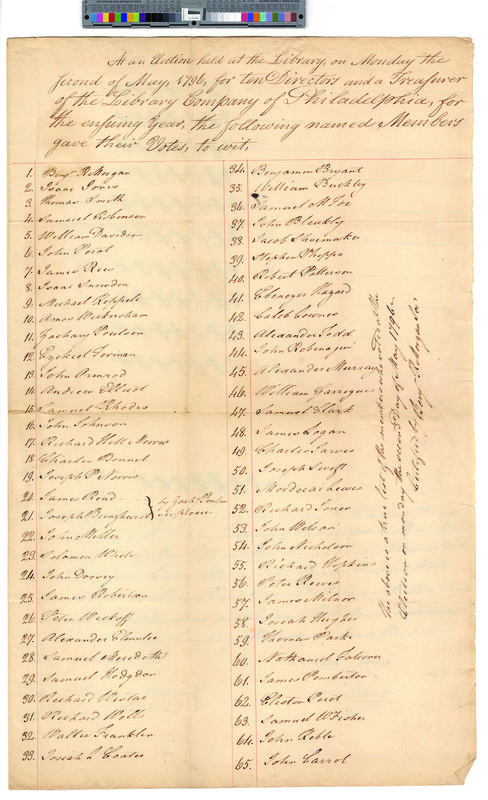 At an Election held at the Library, on Monday the
second of May, 1796, for ten Directors and a Treasurer
of the Library Company of Philadelphia, for
the ensuing Year, the following named Members
gave their Votes, to wit,
1. Benj. R Morgan
2. Isaac Jones
3. Thomas Smith
4. Samuel Robinson
5. William Davidson
6. John Perot
7. James Rees
8. Isaac Snowden
9. Michael Keppele
10. Amos Wickersham
11. Zachary Poulson
12. Ezekiel Forman
13. John Ormrod
14. Andrew Ellicot
15. Samuel Rhodes
16. John Johnson
17. Richard Hill Morris
18. Charles
19. Joseph P. Norris
20. James Read
21. Joseph
by Zach Poulson
22. John Miller
23. Solomon White
24. John Dorsey
25. James Robertson
26. Peter Wickoff
27. Alexander Elmslie
28. Samuel Meredith
29. Samuel Hodgdon
30. Richard Wistar
31. Richard Wells
32. Walter Franklin
33. Josiah L Coates
34. Benjamin Bryant
35. William Buckley
36. Samuel M. Fox
37. John Bleakley
38. Jacob Shoemaker
39. Stephen Phipps
40. Robert Patterson
41. Ebenezer Hazard
42. Caleb Lownes
43. Alexander Todd
44. John
45. Alexander Murray
46. William Garrigues
47. Samuel Clark
48. James Logan
49. Charles Jarvis
50. Joseph Swift
51. Mordecai Lewis
52. Richard Jones
53. John Wilson
54. John Nicholson
55. Richard Hopkins
56. Peter Reeves
57. James Milnor
58. Josiah Hughes
59. Thomas Parke
60. Nathaniel Falconer
61. James Pemberton
62. Elliston Perot
63. Samuel W Fisher
64. John Keble
65. John Carrol
The above is a true list of the members who voted at the
Election on monday the second Day of May 1796.
Certified by